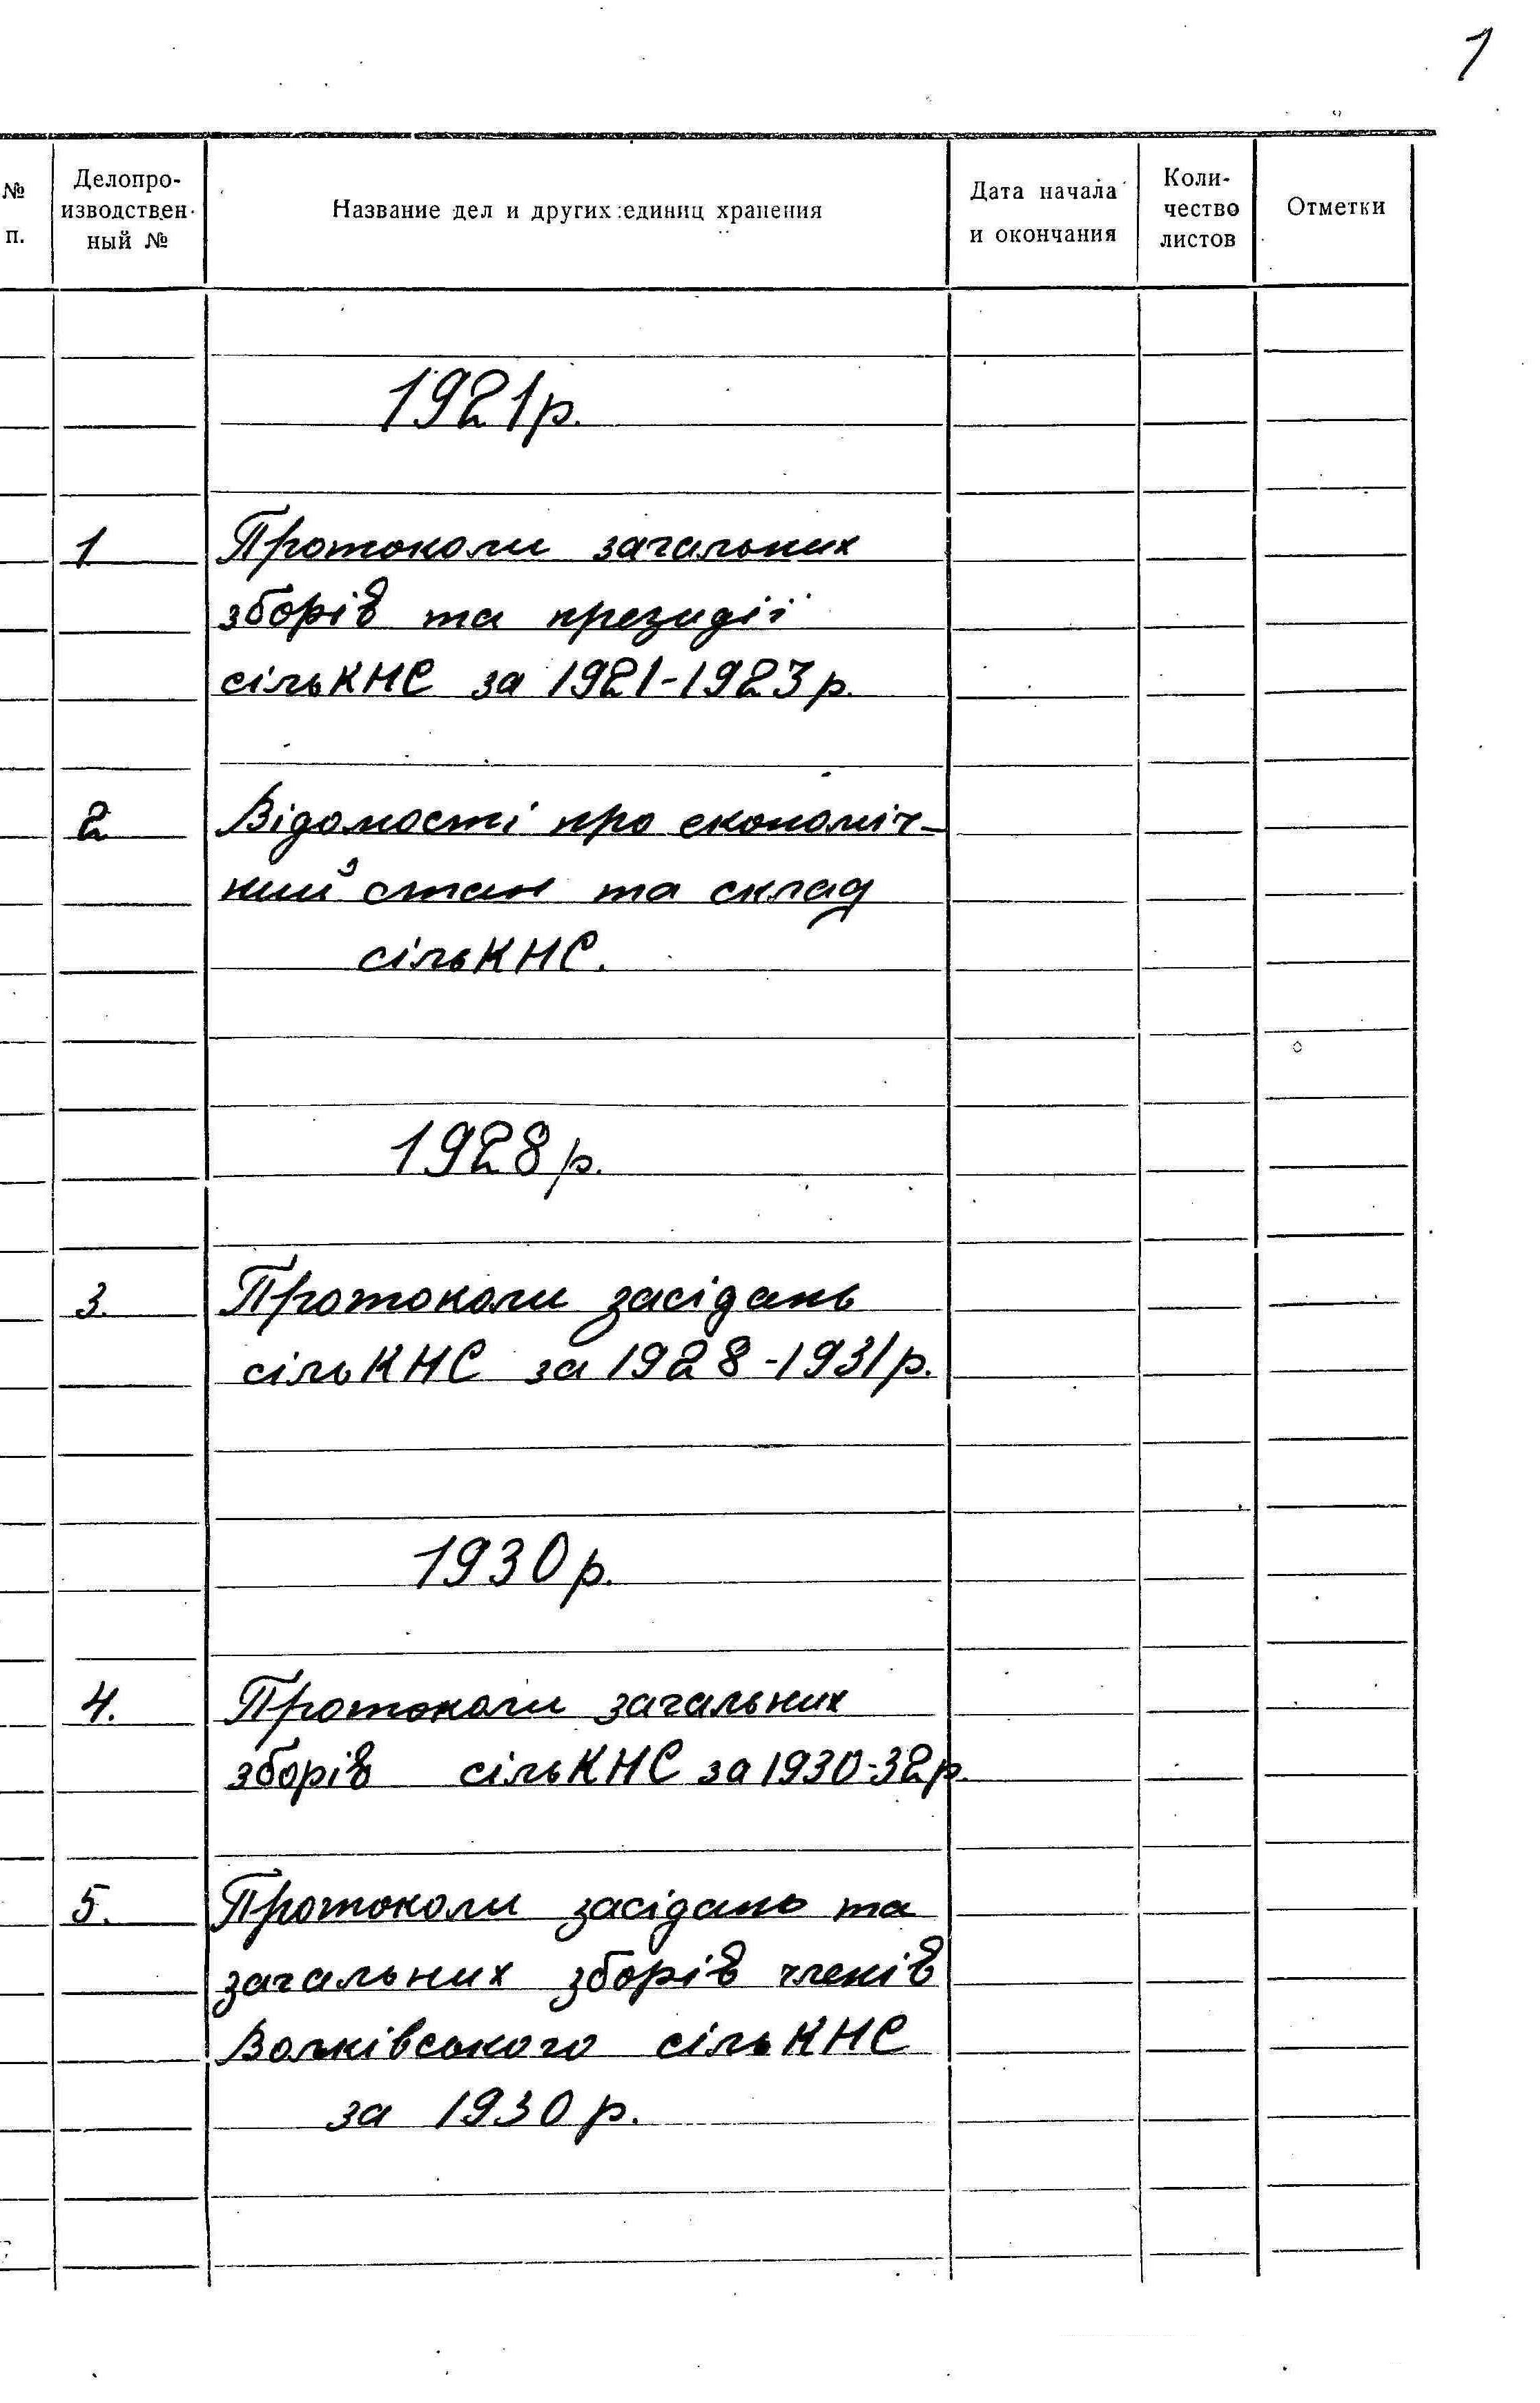 1
№ п.
Делопро-
изводствен-
ный №
Название дел и других единиц хранения
Дата начала
и окончания
Коли-
чество
листов
Отметки
1921р.
1 Протоколи загальних
зборів та президії
сількНС за 1921-1923р.
2 Відомості про економіч-
ний стан та склад
сількНС.
1928р.
3. Протоколи засідань
сількНС за 1928-1931р.
1930р.
4. Протоколи загальних
зборів сількНС за 1930-32р.
5. Протоколи засідань та
загальних зборів членів
Волківського сількНС
за 1930р.